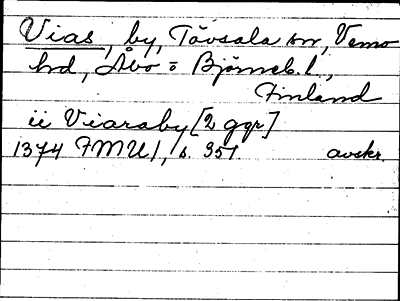 Vias, by, Tövsala sn, Vemo
hd, Åbo o Björneb. l.,
Finland
ii Viarsby [2 ggr]
1374 FMU 1, s. 351. avskr.